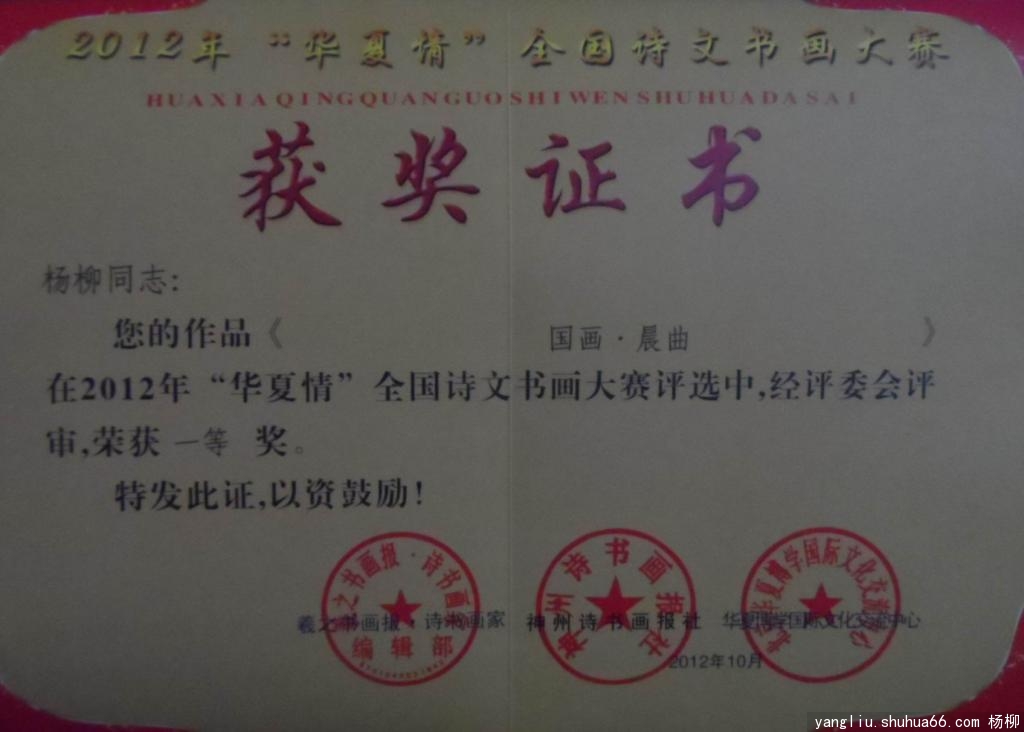 2012年“华夏情”全国诗文书画大赛
HUAXIAQINGQUANGUOSHIWENSHUHUADASAI
获奖证书
杨柳同志:
您的作品《国画·晨曲》
在2012年“华夏情”全国诗文书画大赛评选中,经评委会评
审,荣获 一等 奖。
特发此证,以资鼓励!
羲之书画报·诗书画家
编辑部
神州诗书画报社
神州诗书画报社
华夏博学国际文化交流中心
北京华夏博学国际文化交流中心
2012年10月
yangliu.shuhua66.com 杨柳